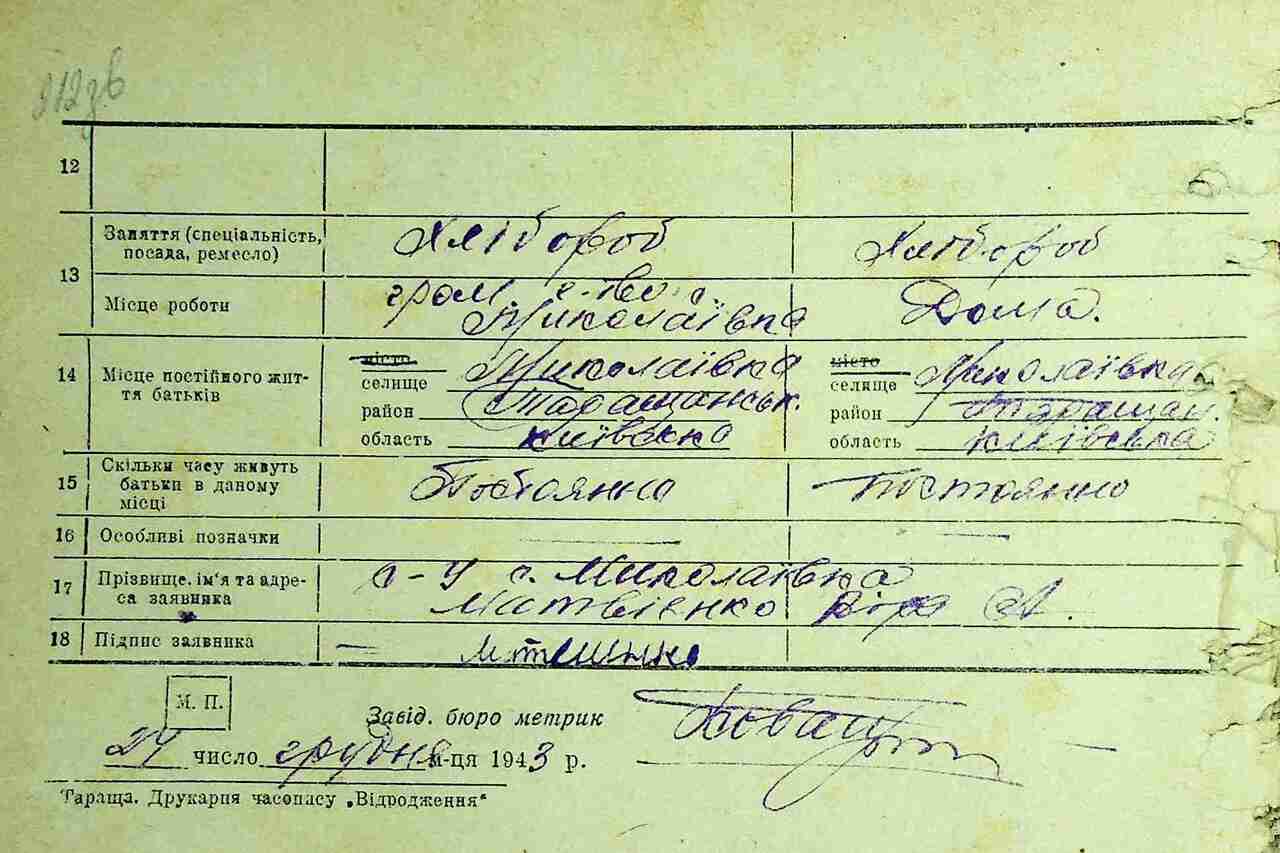 12
Заняття (спеціальність, Хлібороб Хлібороб
посада, ремесло)
13
Місце роботи гром. г-тво с. Миколаївка Дома.
14 Місце постійного жит-
тя батьків
місто Миколаївка місто Миколаївка
селище селище
район Таращанськ. район Таращан.
область Київська область Київська
15 Скільки часу живуть
батьки в даному
місці
Постоянно Постоянно
16 Особливі позначки
17 Прізвище, ім'я та адре-
са заявника
с. Миколаївка
Матвієнко Віра А.
18 Підпис заявника
М. П.
Завід. бюро метрик
24 число грудня м-ця 1943 р.
Тараща. Друкарня часопису „Відродження"